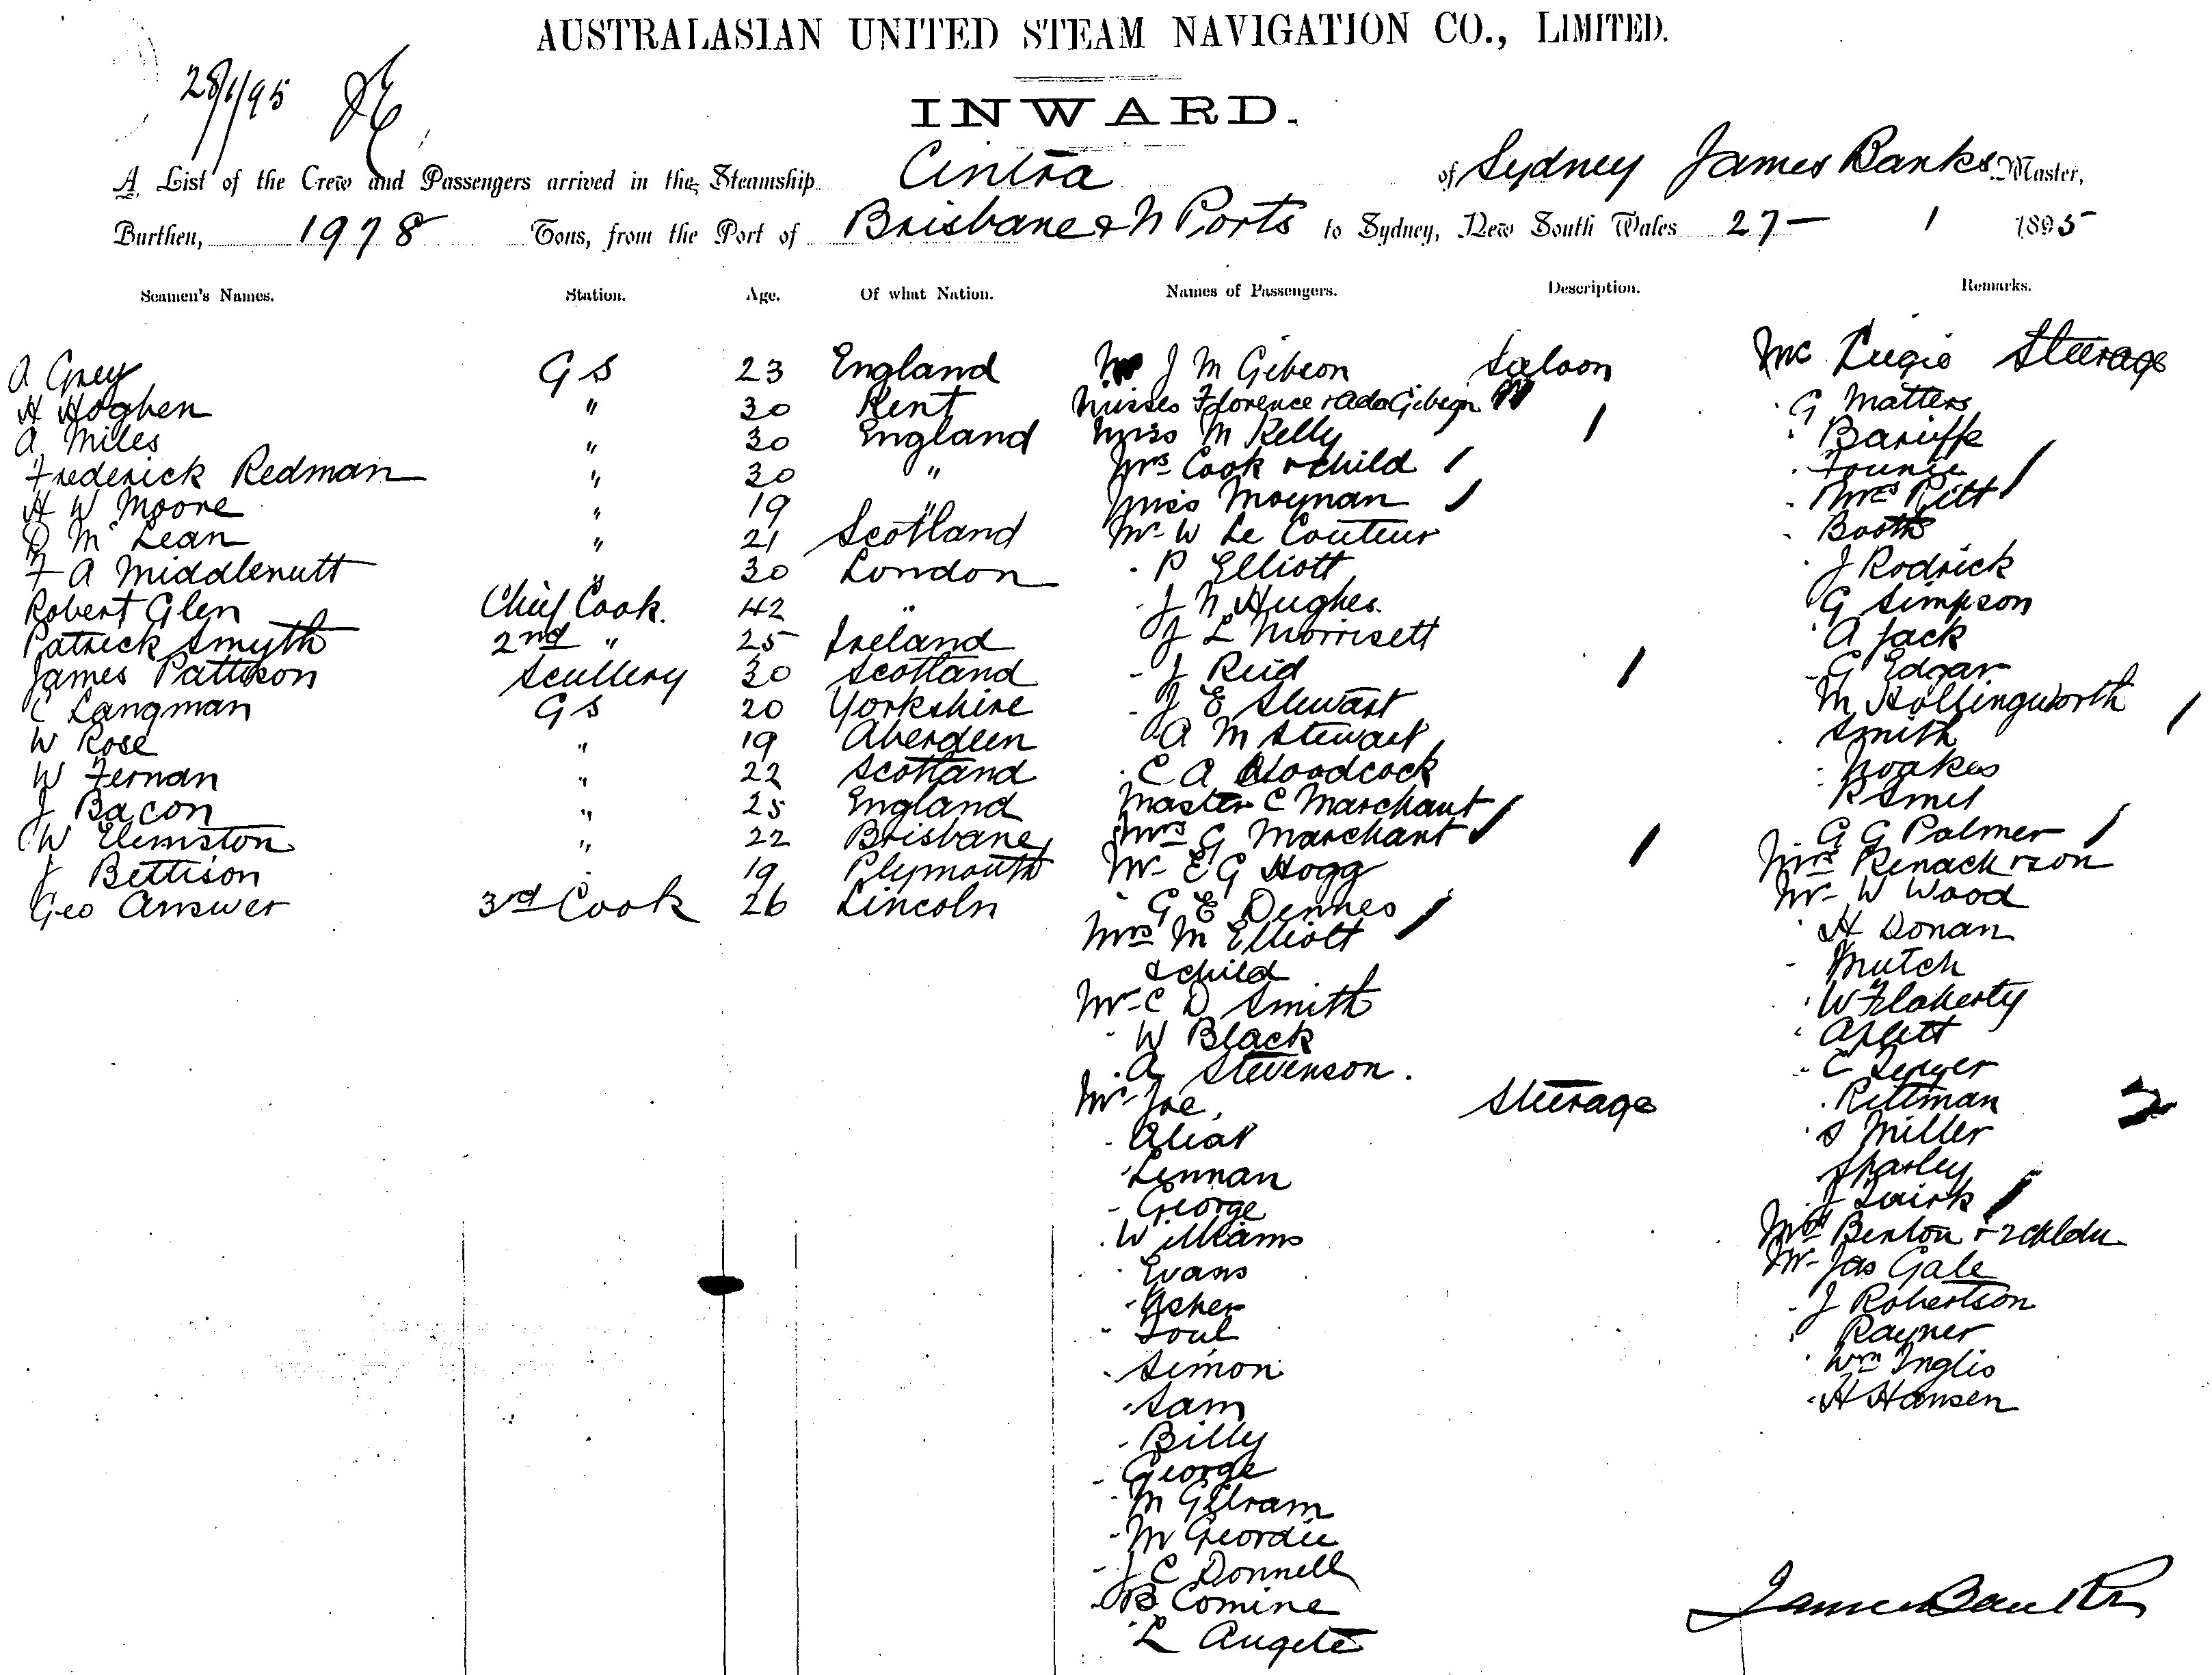 AUSTRALASIAN UNITED STEAM NAVIGATION CO., LIMITED.
28/1/95
INWARD.
A List of the Crew and Passengers arrived in the Steamship Cintra of Sydney James Banks Master,
Burthen, 1978 Tons, from the Port of Brisbane & N Ports to Sydney, New South Wales 27 - 1 1895
Seamen's Names. Station. Age. Of what Nation. Names of Passengers. Description. Remarks.
A Grey G S 23 England
H Hoghen " 30 Kent
A Miles " 30 England
Frederick Redman " 30 "
H W Moore " 19 "
D Mc Lean " 21 Scotland
F A Middlenutt " 30 London
Robert Glen Chief Cook. 42 "
Patrick Smyth 2nd " 25 Ireland
James Pattison Scullery 30 Scotland
C Langman G S 20 Yorkshire
W Rose " 19 Aberdeen
W Fernan " 22 Scotland
J Bacon " 25 England
W Elmston " 22 Brisbane
J Bettison " 19 Plymouth
Geo Answer 3rd Cook 26 Lincoln
J M Gibson Saloon
Misses Florence & Ada Gibson
Miss M Kelly
Mrs Cook & child
Miss Moynan
Mr W Le Couteur
" P Elliott
" J N Hughes
J L Morrisett
" J Reid
" J E Stewart
" A M Stewart
" C A Woodcock
Master C Marchant
Mrs G Marchant
Mr E G Hogg
" G E Dennes
Mrs M Elliott
& child
Mr C D Smith
" W Black
" A Stevenson.
Mr Joe, Steerage
" Aliat
" Lennan
" George
" Williams
" Evans
" Asher
" Soul
" Simon
" Sam
" Billy
" George
" M Gilram
" M Geordie
" J C Donnell
" B Comine
" L Augele
Mc Steerage
" G Matters
" Bariffe
" Mrs Pitt
" Booth
" J Rodrick
" G Simpson
" A Jack
" G Edgar
M Hollingworth
" Smith
" Noakes
" R Smel
" G G Palmer
Mrs Renack & son
Mr W Wood
" H Donan
" Mutch
" W Flaherty
" C
" Rittman
" S Miller
Sparley
" J Quirk
Mrs Benton & 2 chldn
Mr Jas Gale
" J Robertson
" Rayner
" Wm Inglis
" H Hansen
James Banks